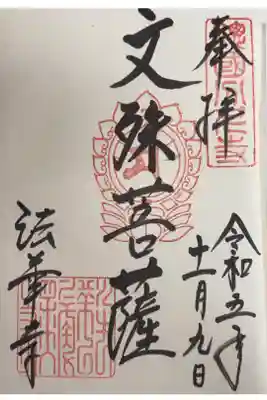 奉拝
令和五年
十一月九日
文殊菩薩
法華寺